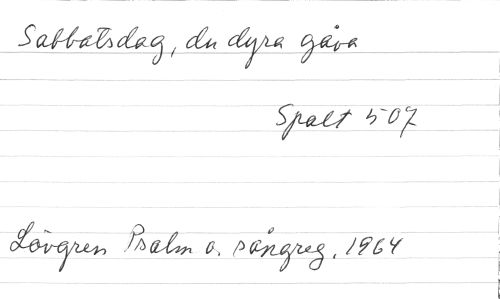 Sabbatsdag, du dyra gåva
Spalt 507
Lövgren Psalm o. sångreg. 1964